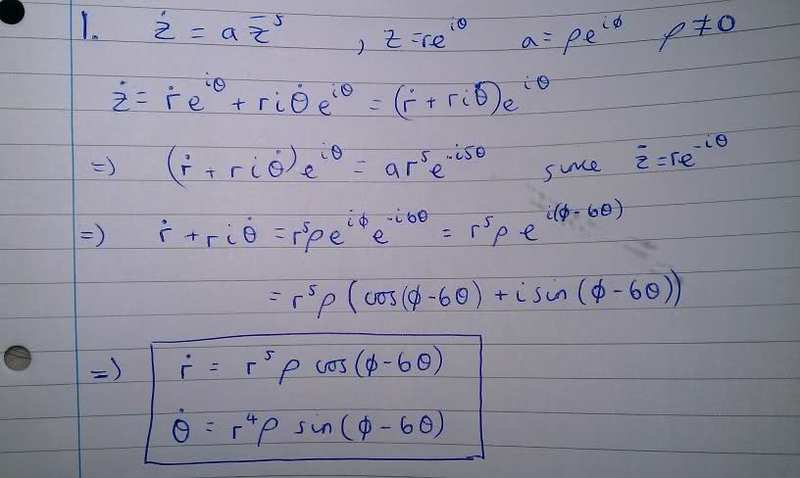 1. ż = a z̄⁵ , z = re^{iθ} a = ρe^{iϕ} ρ ≠ 0
ż = ṙe^{iθ} + riθ̇e^{iθ} = (ṙ + riθ̇)e^{iθ}
=> (ṙ + riθ̇)e^{iθ} = ar⁵e^{-i5θ} since z̄ = re^{-iθ}
=> ṙ + riθ̇ = r⁵ρe^{iϕ}e^{-i6θ} = r⁵ρe^{i(ϕ-6θ)}
= r⁵ρ(cos(ϕ-6θ) + i sin(ϕ-6θ))
=> ṙ = r⁵ρ cos(ϕ-6θ)
θ̇ = r⁴ρ sin(ϕ-6θ)